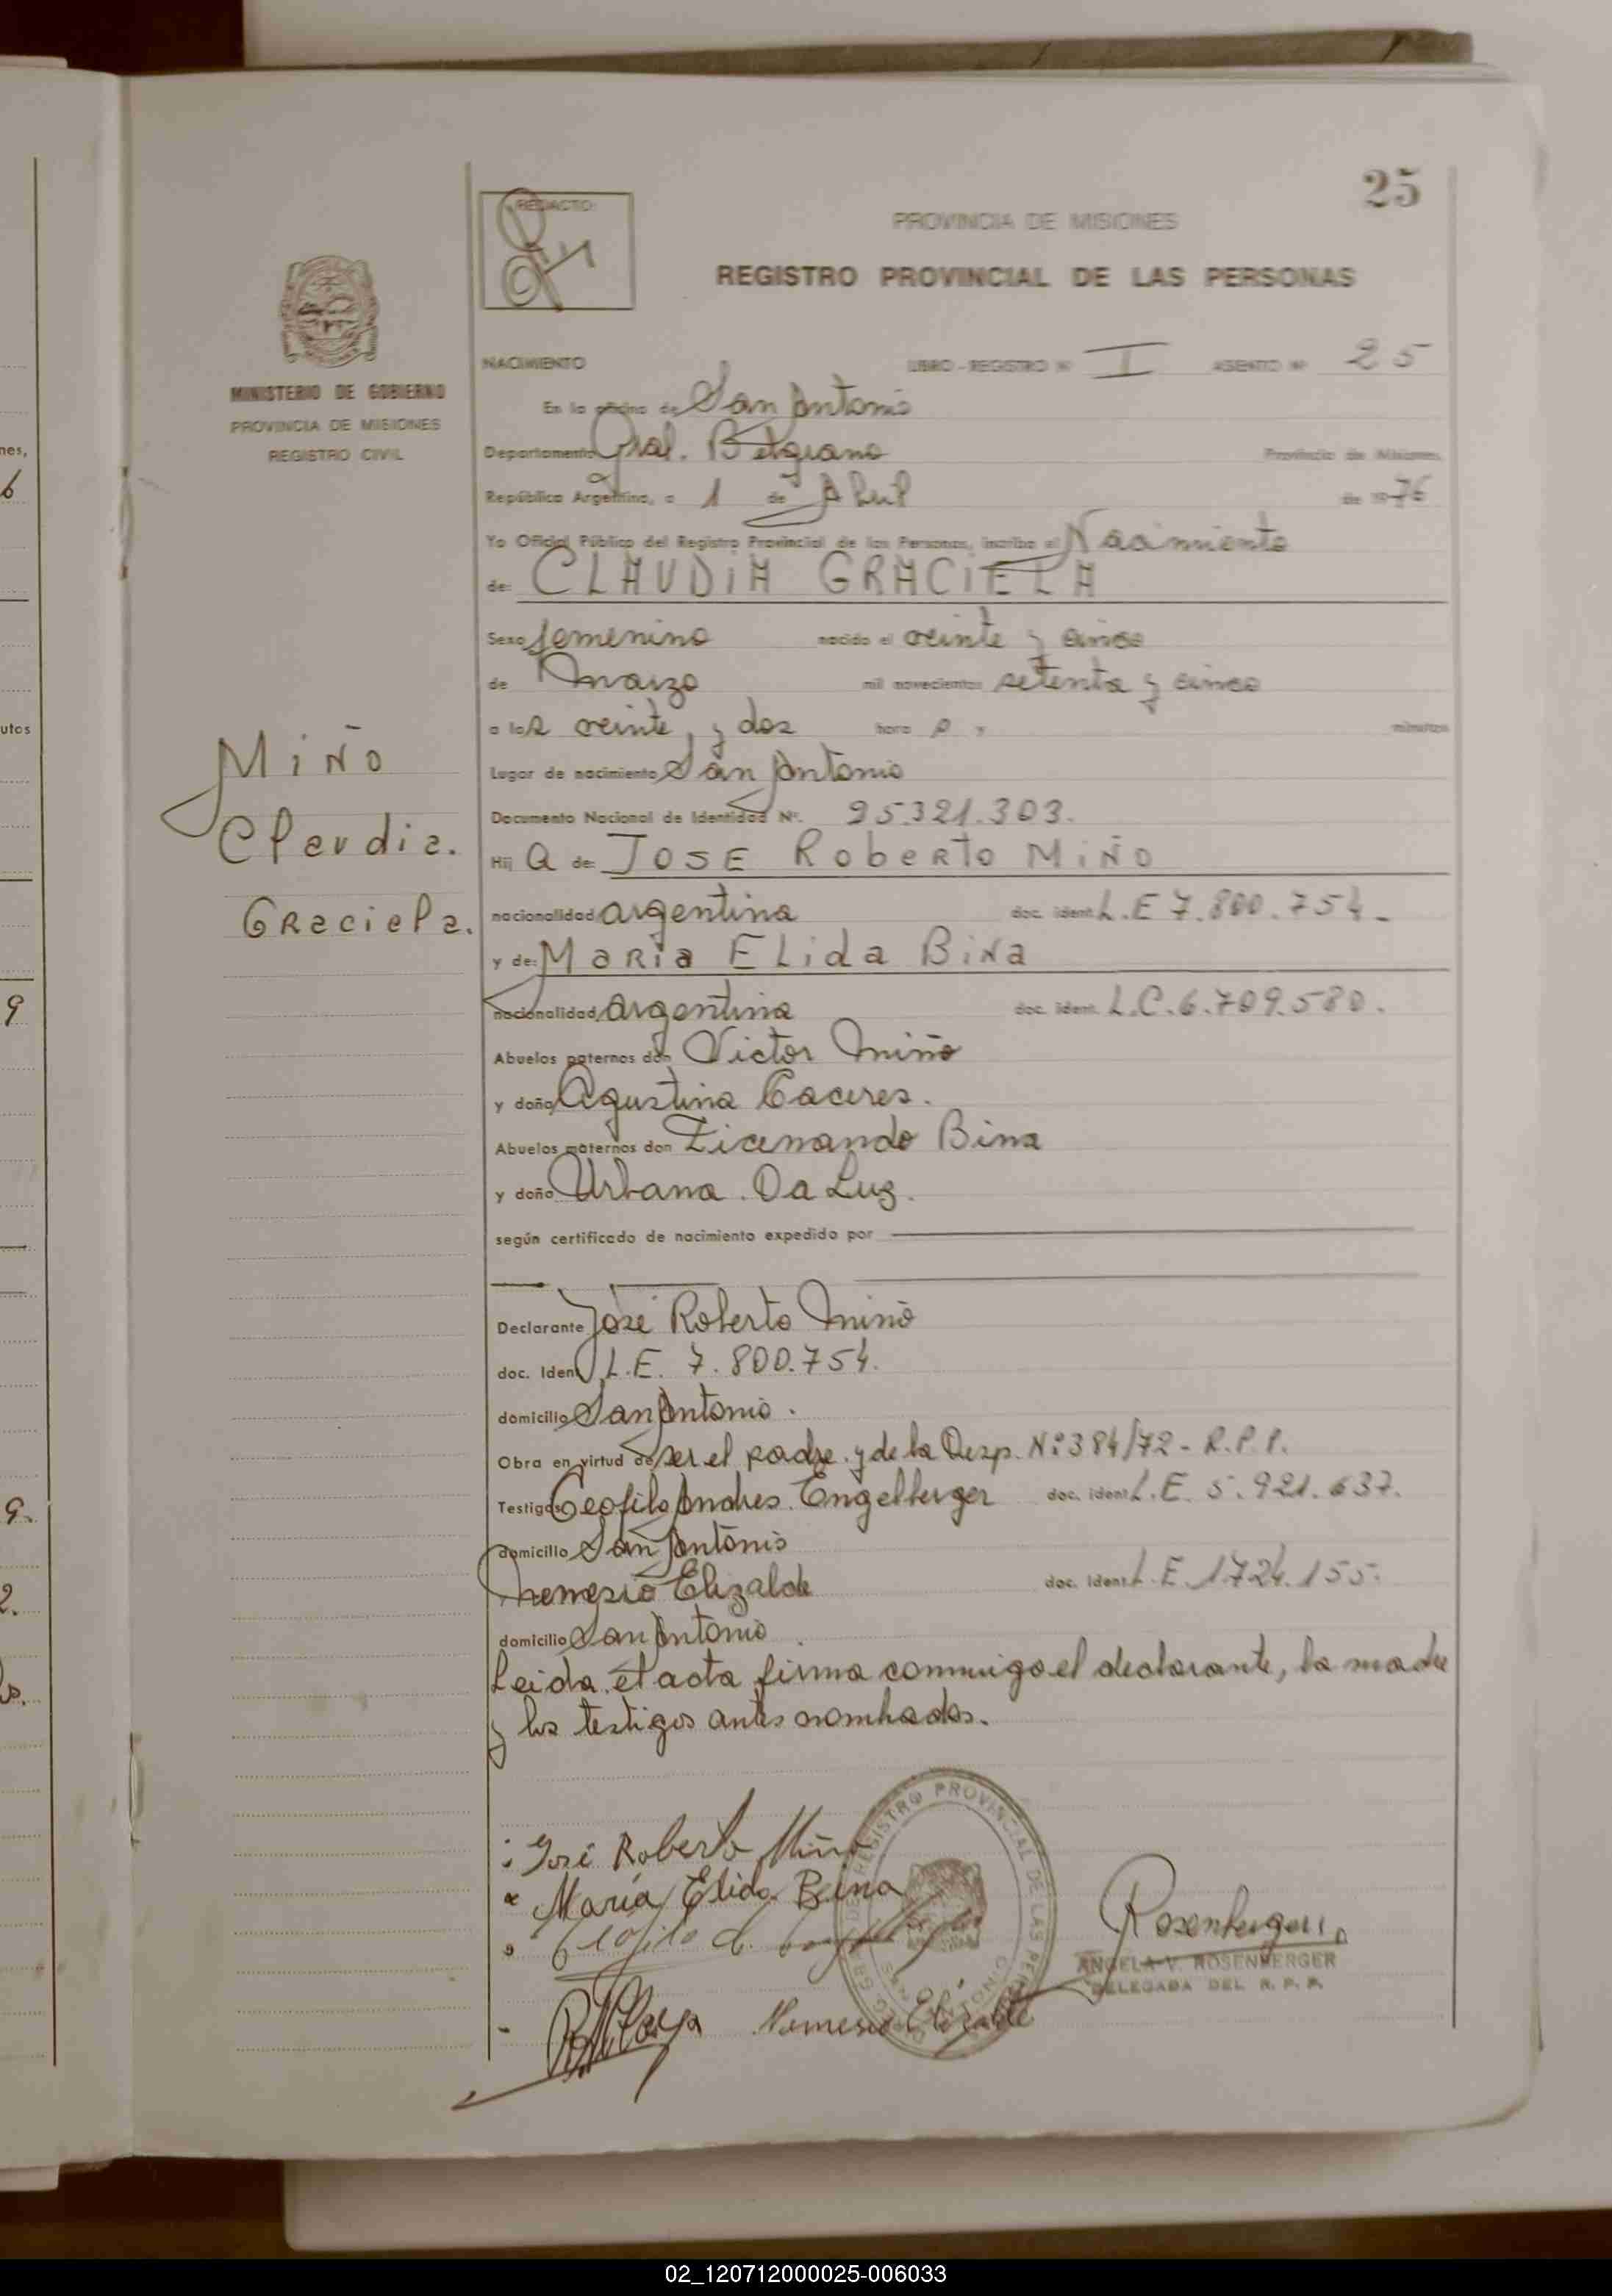 25
REDACTO:
PROVINCIA DE MISIONES
REGISTRO PROVINCIAL DE LAS PERSONAS
MINISTERIO DE GOBIERNO
PROVINCIA DE MISIONES
REGISTRO CIVIL
NACIMIENTO LIBRO - REGISTRO Nº I ASIENTO Nº 25
En la oficina de San Antonio
Departamento Gral. Belgrano Provincia de Misiones,
República Argentina, a 1 de Abril de 1976
Yo Oficial Público del Registro Provincial de las Personas, inscribo el Nacimiento
de: CLAUDiA GRACiELA
Sexo femenino nacido el veinte y cinco
de Marzo mil novecientos setenta y cinco
a las veinte y dos hora s y minutos
Lugar de nacimiento San Antonio
Documento Nacional de Identidad Nº. 25.321.303.
Hij a de: JOSE RobeRTo MiÑo
nacionalidad argentina doc. ident. L.E 7.800.754-
y de: MaRia ELida BiNa
nacionalidad argentina doc. ident. L.C.6.709.580.
Abuelos paternos don Victor Miño
y doña Agustina Caceres.
Abuelos maternos don Zicenando Bina
y doña Urbana Da Luz.
según certificado de nacimiento expedido por
Declarante José Roberto Miño
doc. Ident. L.E. 7.800.754.
domicilio San Antonio.
Obra en virtud de ser el padre y de la Desp. Nº 384/72 - R.P.P.
Testigos Teofilo Andres Engelberger doc. ident. L.E. 5.921.637.
domicilio San Antonio
Nemesio Elizalde doc. Ident. L.E. 1724.155.
domicilio San Antonio.
Leida el acta firma conmigo el declarante, la madre
y los testigos antes nombrados.
MiÑo
Claudia.
GRaciela.
José Roberto Miño
María Elida Bina
Nemesio Elizalde
REGISTRO PROVINCIAL DE LAS
SAN ANTONIO
Rosenberger
ANGELA V. ROSENBERGER
DELEGADA DEL R. P. P.
nes,
6
utos
9
9.
2.
02_120712000025-006033